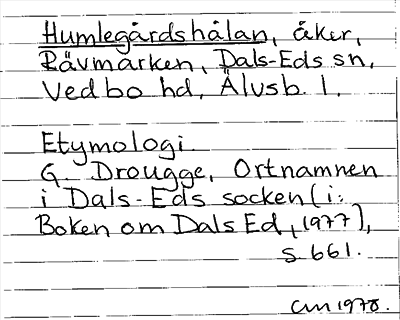 Humlegårdshålan, åker,
Rävmarken, Dals-Eds sn,
Vedbo hd, Älvsb. l.
Etymologi
G. Drougge, Ortnamnen
i Dals-Eds socken (i:
Boken om Dals Ed, 1977),
s 661.
CM 1978.